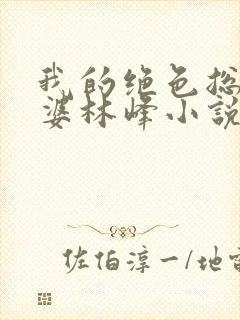 我的绝色总
婆林峰小说
佐伯淳一/地